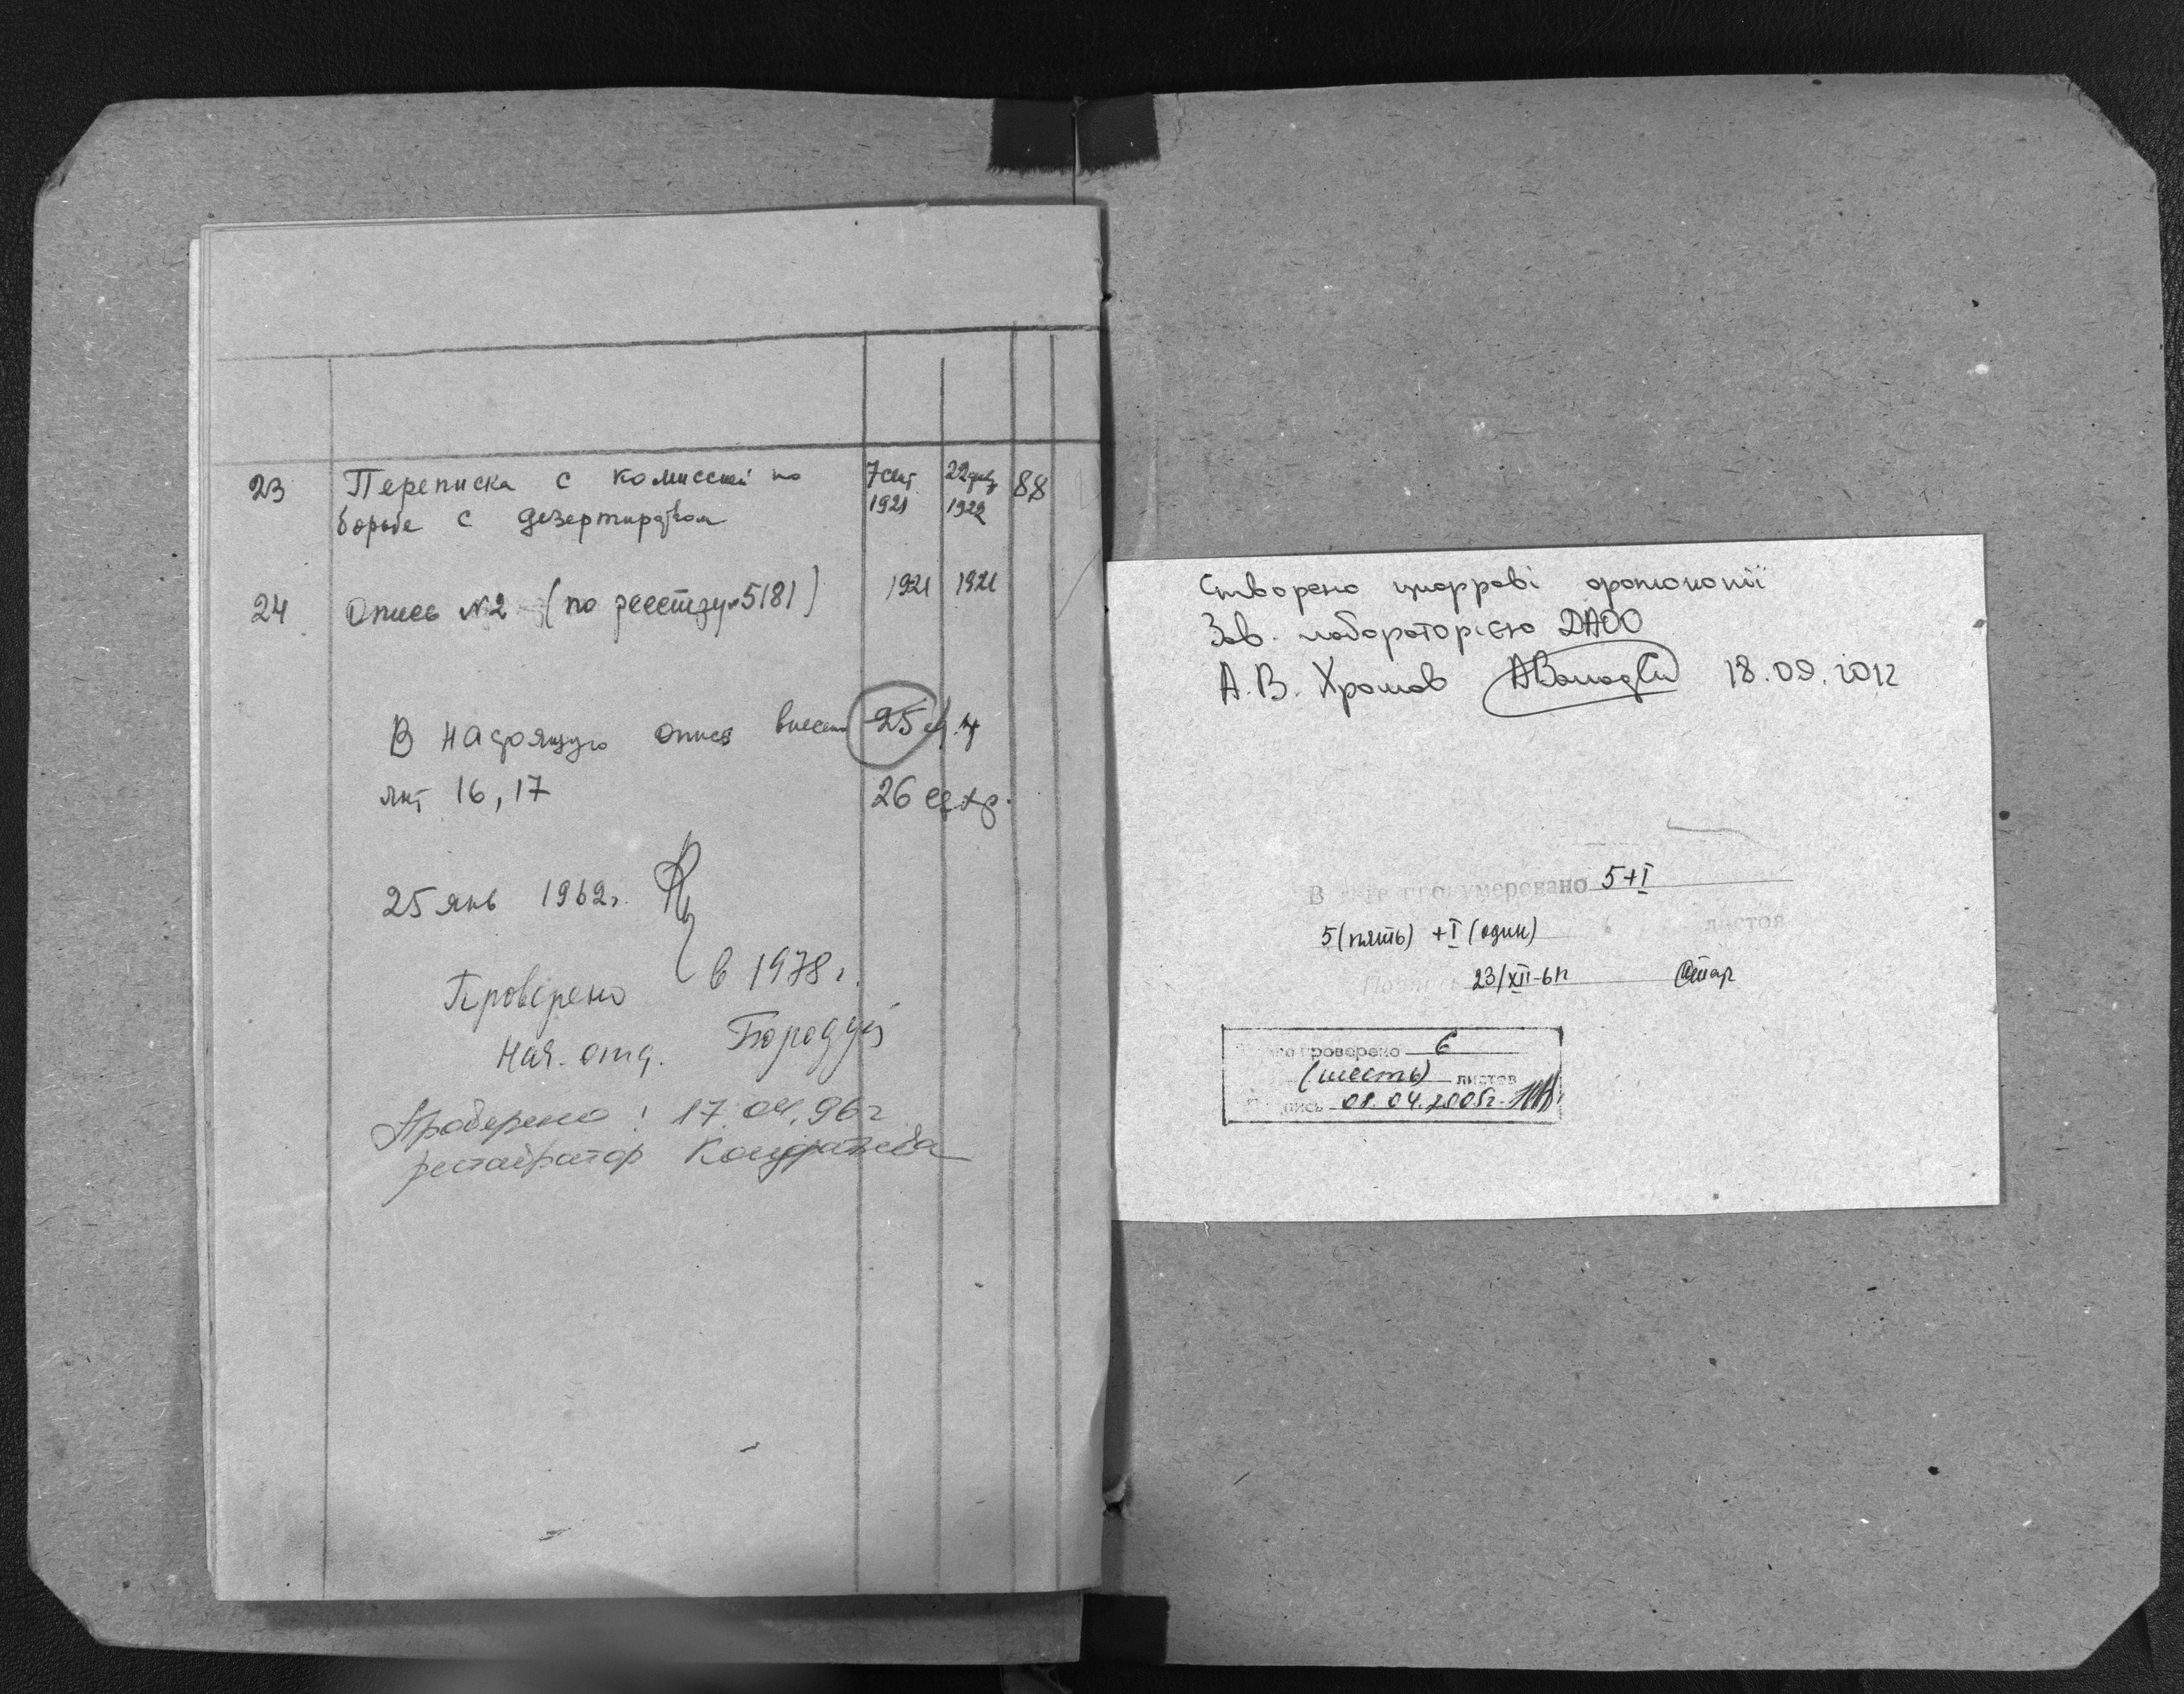 23 Переписка с комиссией по 7 сент 22 фев 88
борьбе с дезертирством 1921 1922
24 Опись №2 (по реестру 5181) 1921 1921
В настоящую опись внесено 25 ед. хр
лит 16, 17 26 ед хр.
25 янв 1962г.
Проверено в 1978 г.
Нач. отд.
Проверено! 17.04.96г
реставратор Кондратьева
Створено цифрові фотокопії
Зав. лабораторією ДАОО
А.В. Хромов 18.09.2012
В пронумеровано 5+I
5 (пять) + I (один) листов
23/XII-61г
проверено 6
(шесть) листов
01.04.2005г.